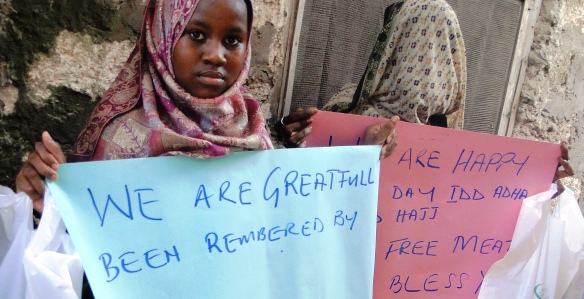 WE ARE GREATFULL
BEEN REMBERED BY
ARE HAPPY
DAY IDD ADHA
HAJJ
FREE MEAT
BLESS